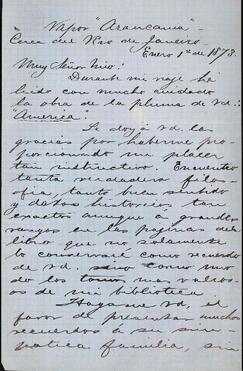 Vapor "Araucania"
Cerca del Rio de Janeiro.
Enero 1º de 1878.
Muy Señor Mio:
Durante mi viaje he
leido con mucho cuidado
la obra de la pluma de vd:
"America":
Le doy á vd. las
gracias por haberme pro-
porcionado un placer
tan instructivo. Encuentro
tanta verdadera filo-
sofia, tanto buen sentido
y datos historicos, tan
exactos aunque a grandes
rasgos en las paginas del
libro que no solamente
lo conservaré como recuerdo
de vd. sino como uno
de los tomos mas valio-
sos de mi biblioteca.
Hagame vd. el
favor de presentar muchos
recuerdos á su sim-
patica familia, sin